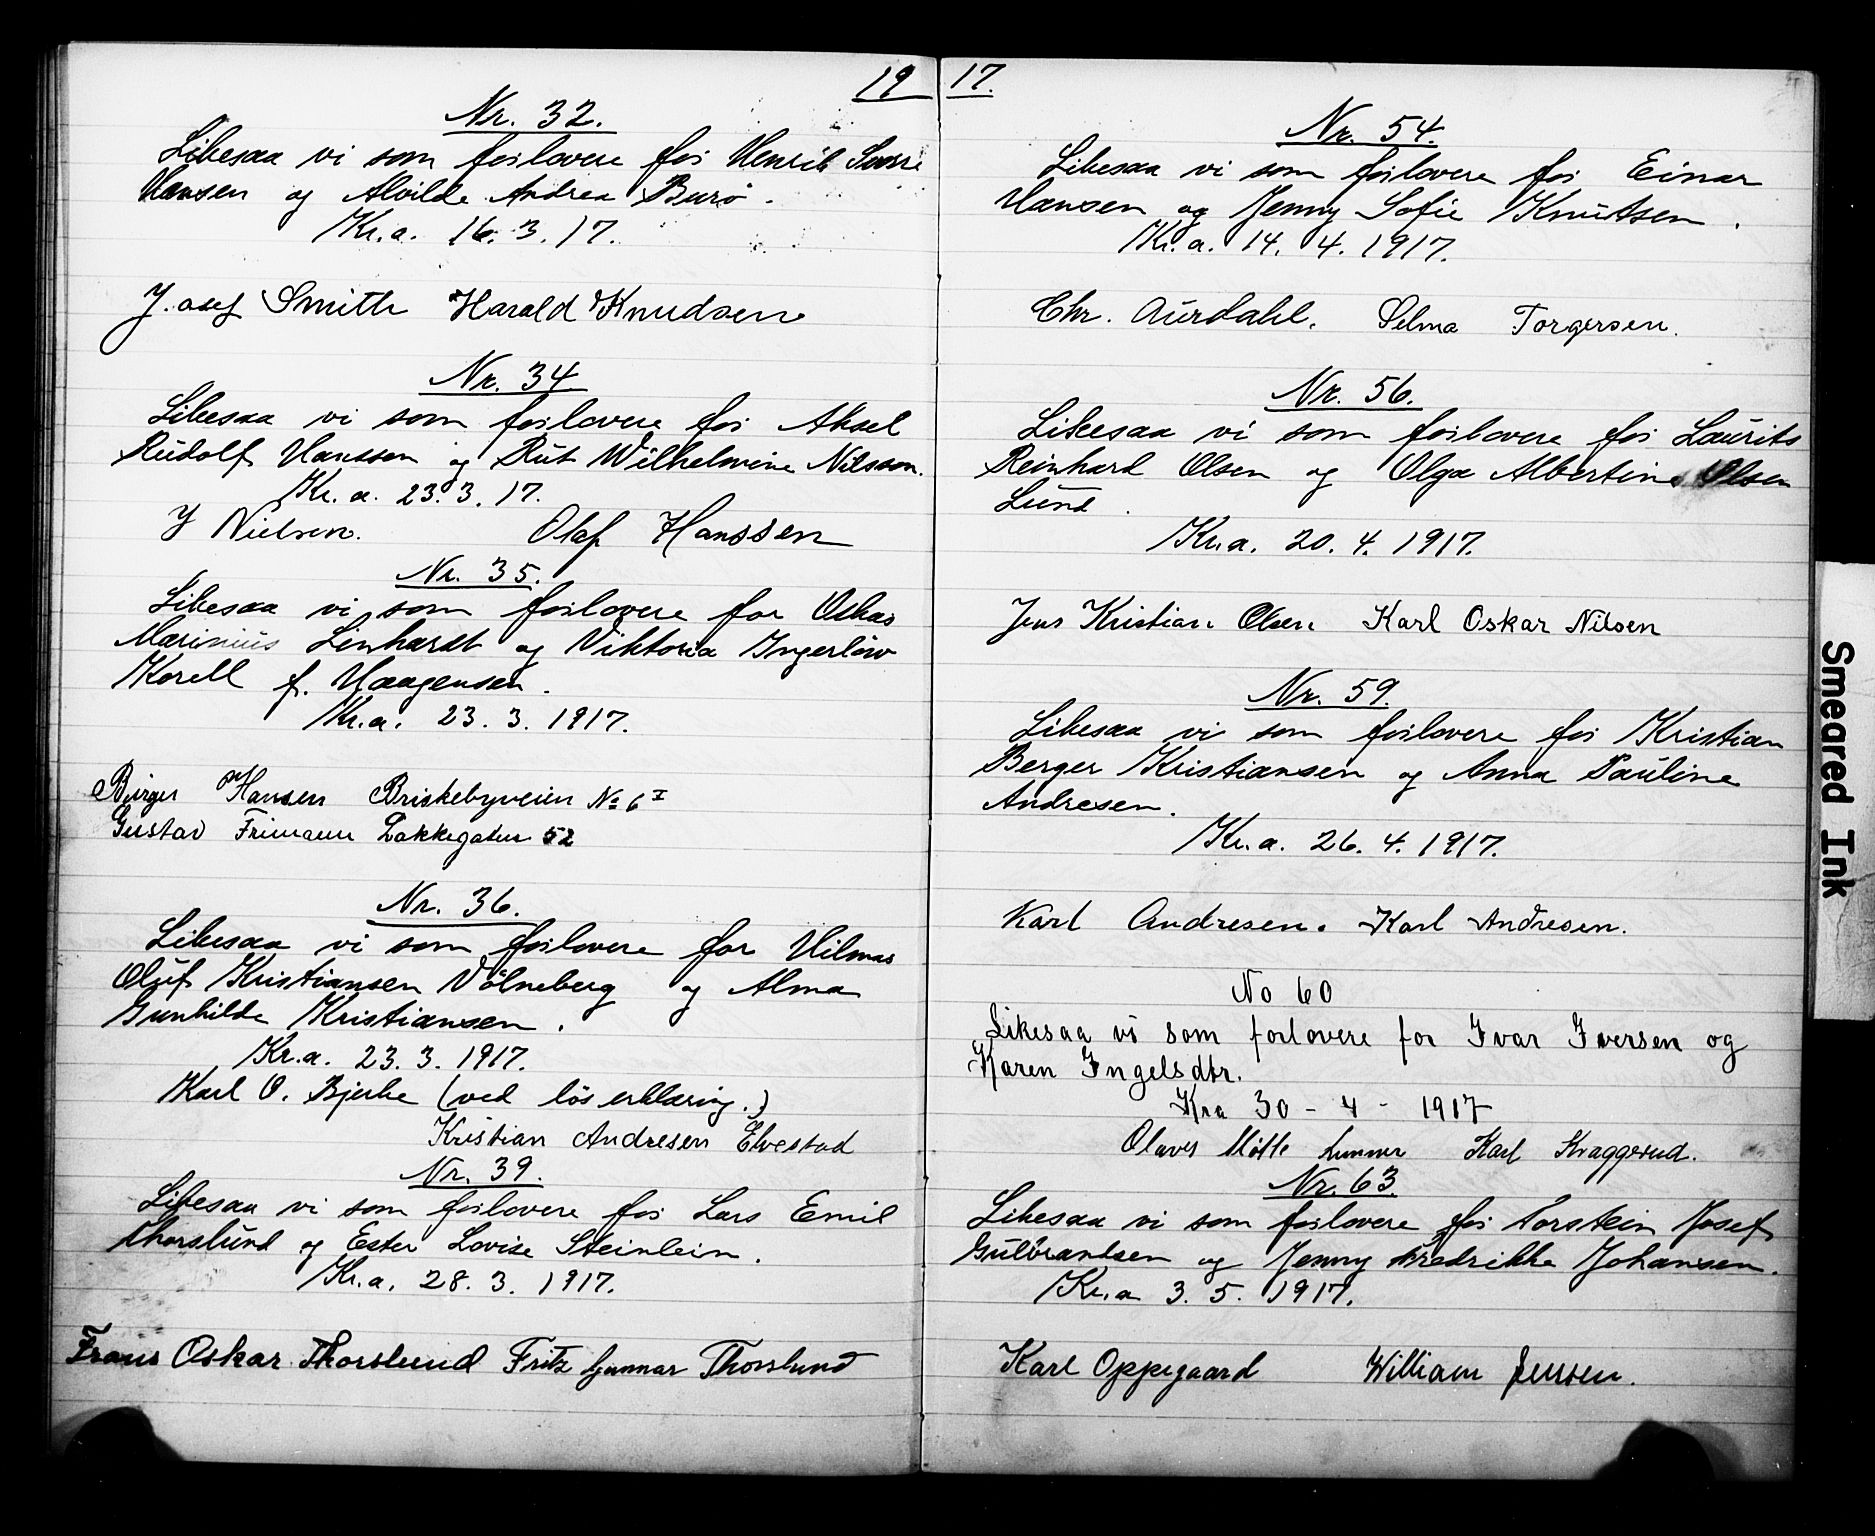 19 17.
Nr. 32.
Likesaa vi som forlovere for Henrik Snorre
Hansen og Alvilde Andrea Burø.
Kr.a. 16. 3. 17.
J. osef Smith Harald Knudsen
Nr. 34
Likesaa vi som forlovere for Aksel
Rudolf Hanssen og Rut Wilhelmine Nilsson.
Kr. a. 23. 3. 17.
J Nielsen. Olaf Hanssen
Nr. 35.
Likesaa vi som forlovere for Oskar
Marinius Lenhardt og Viktoria Ingerløw
Korell f. Haagensen.
Kr.a. 23. 3. 1917.
Birger Hansen Briskebyveien No 6 I
Gustav Frimann Lakkegaten 52
Nr. 36.
Likesaa vi som forlovere for Hilmar
Oluf Kristiansen Völneberg og Alma
Gunhilde Kristiansen.
Kr.a. 23. 3. 1917.
Karl O. Bjerke (ved løs erklæring.)
Kristian Andresen Elvestad
Nr. 39.
Likesaa vi som forlovere for Lars Emil
Thorslund og Ester Lovise Steinlein.
Kr.a. 28. 3. 1917.
Frans Oskar Thorslund Fritz Gunnar Thorslund
Nr. 54.
Likesaa vi som forlovere for Einar
Hansen og Jenny Sofie Knutsen.
Kr.a. 14. 4. 1917.
Chr. Aurdahl. Selma Torgersen.
Nr. 56.
Likesaa vi som forlovere for Laurits
Reinhard Olsen og Olga Albertine Olsen
Lund.
Kr.a. 20. 4. 1917.
Jens Kristian Olsen Karl Oskar Nilsen
Nr. 59.
Likesaa vi som forlovere for Kristian
Berger Kristiansen og Anna Pauline
Andresen.
Kr.a. 26. 4. 1917.
Karl Andresen. Karl Andresen.
No 60
Likesaa vi som forlovere for Ivar Iversen og
Karen Ingelsdtr.
Kra 30 - 4 - 1917
Olaves Lunner Karl Kraggerud.
Nr. 63.
Likesaa vi som forlovere for Torstein Josef
Gulbrandsen og Jenny Fredrikke Johansen.
Kr.a 3. 5. 1917.
Karl Oppegaard William Jensen.
Smeared Ink